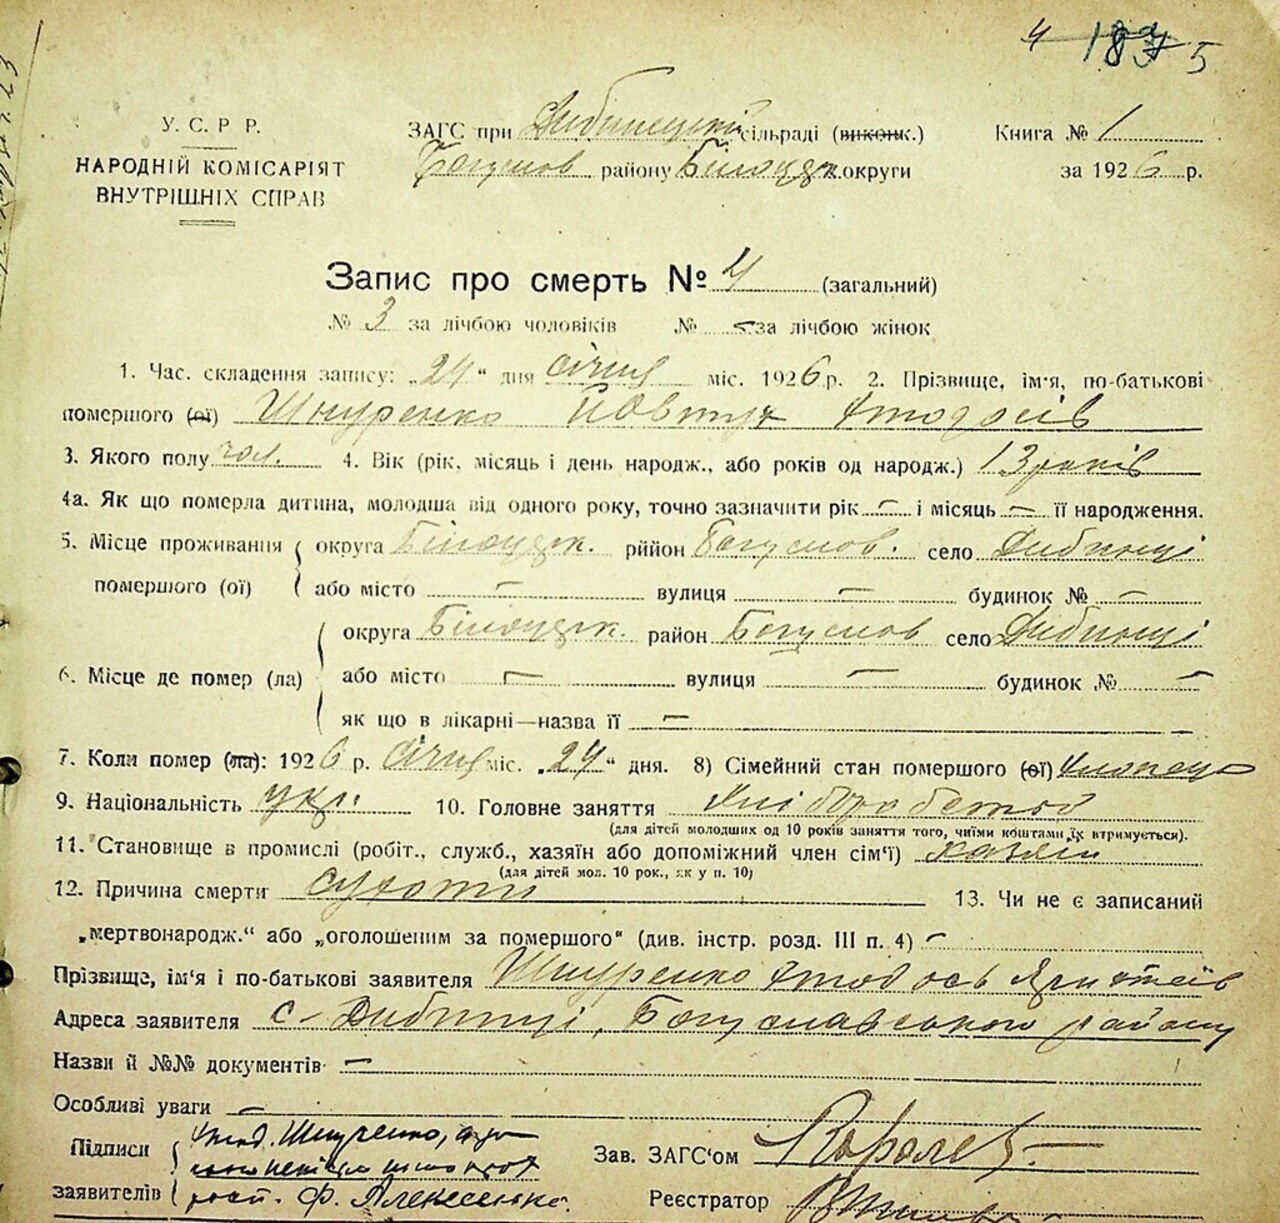 5
У. С. Р. Р.
НАРОДНІЙ КОМІСАРІЯТ
ВНУТРІШНІХ СПРАВ
ЗАГС при Дибинецкій сільраді (виконк.)
Богуслов району Білоцерк. округи
Книга № 1
за 1926 р.
Запис про смерть № 4 (загальний)
№ 3 за лічбою чоловіків № – за лічбою жінок
1. Час. складення запису: „24“ дня січня міс. 1926 р. 2. Прізвище, ім'я, по-батькові
помершого (ої) Шнуренко Йовтух Фтодосів
3. Якого полу чол. 4. Вік (рік, місяць і день народж., або років од народж.) 13 років
4а. Як що померла дитина, молодша від одного року, точно зазначити рік – і місяць – її народження.
5. Місце проживання округа Білоцерк. рййон Богуслов. село Дибинці
помершого (ої) або місто – вулиця – будинок № –
округа Білоцерк. район Богуслов село Дибинці
6. Місце де помер (ла) або місто – вулиця – будинок № –
як що в лікарні—назва її –
7. Коли помер (ла): 1926 р. січня міс. „24“ дня. 8) Сімейний стан помершого (ої) хлопець
9. Національність укр. 10. Головне заняття хліборобство
(для дітей молодших од 10 років заняття того, чиїми коштами їх втримується).
11. Становище в промислі (робіт., служб., хазяїн або допоміжний член сім'ї) хазяїн
(для дітей мол. 10 рок., як у п. 10)
12. Причина смерти сухоти 13. Чи не є записаний
„мертвонародж.“ або „оголошеним за помершого“ (див. інстр. розд. III п. 4) –
Прізвище, ім'я і по-батькові заявителя Шнуренко Фтодось
Адреса заявителя с– Дибинці, Богуславського району
Назви й №№ документів –
Особливі уваги –
Підписи Фтод. Шнуренко, а за
заявителів розп. Ф. Алексієнко.
Зав. ЗАГС'ом Королев
Реєстратор